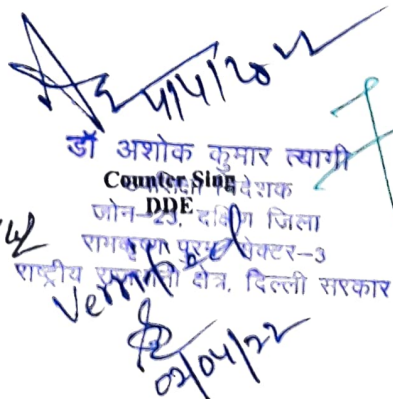 4/4/2022
डॉ अशोक कुमार त्यागी
Counter Sing
DDE
जोन-23, दक्षिण जिला
रामकृष्ण पुरम सेक्टर-3
राष्ट्रीय राजधानी क्षेत्र, दिल्ली सरकार
Verified
02/04/22